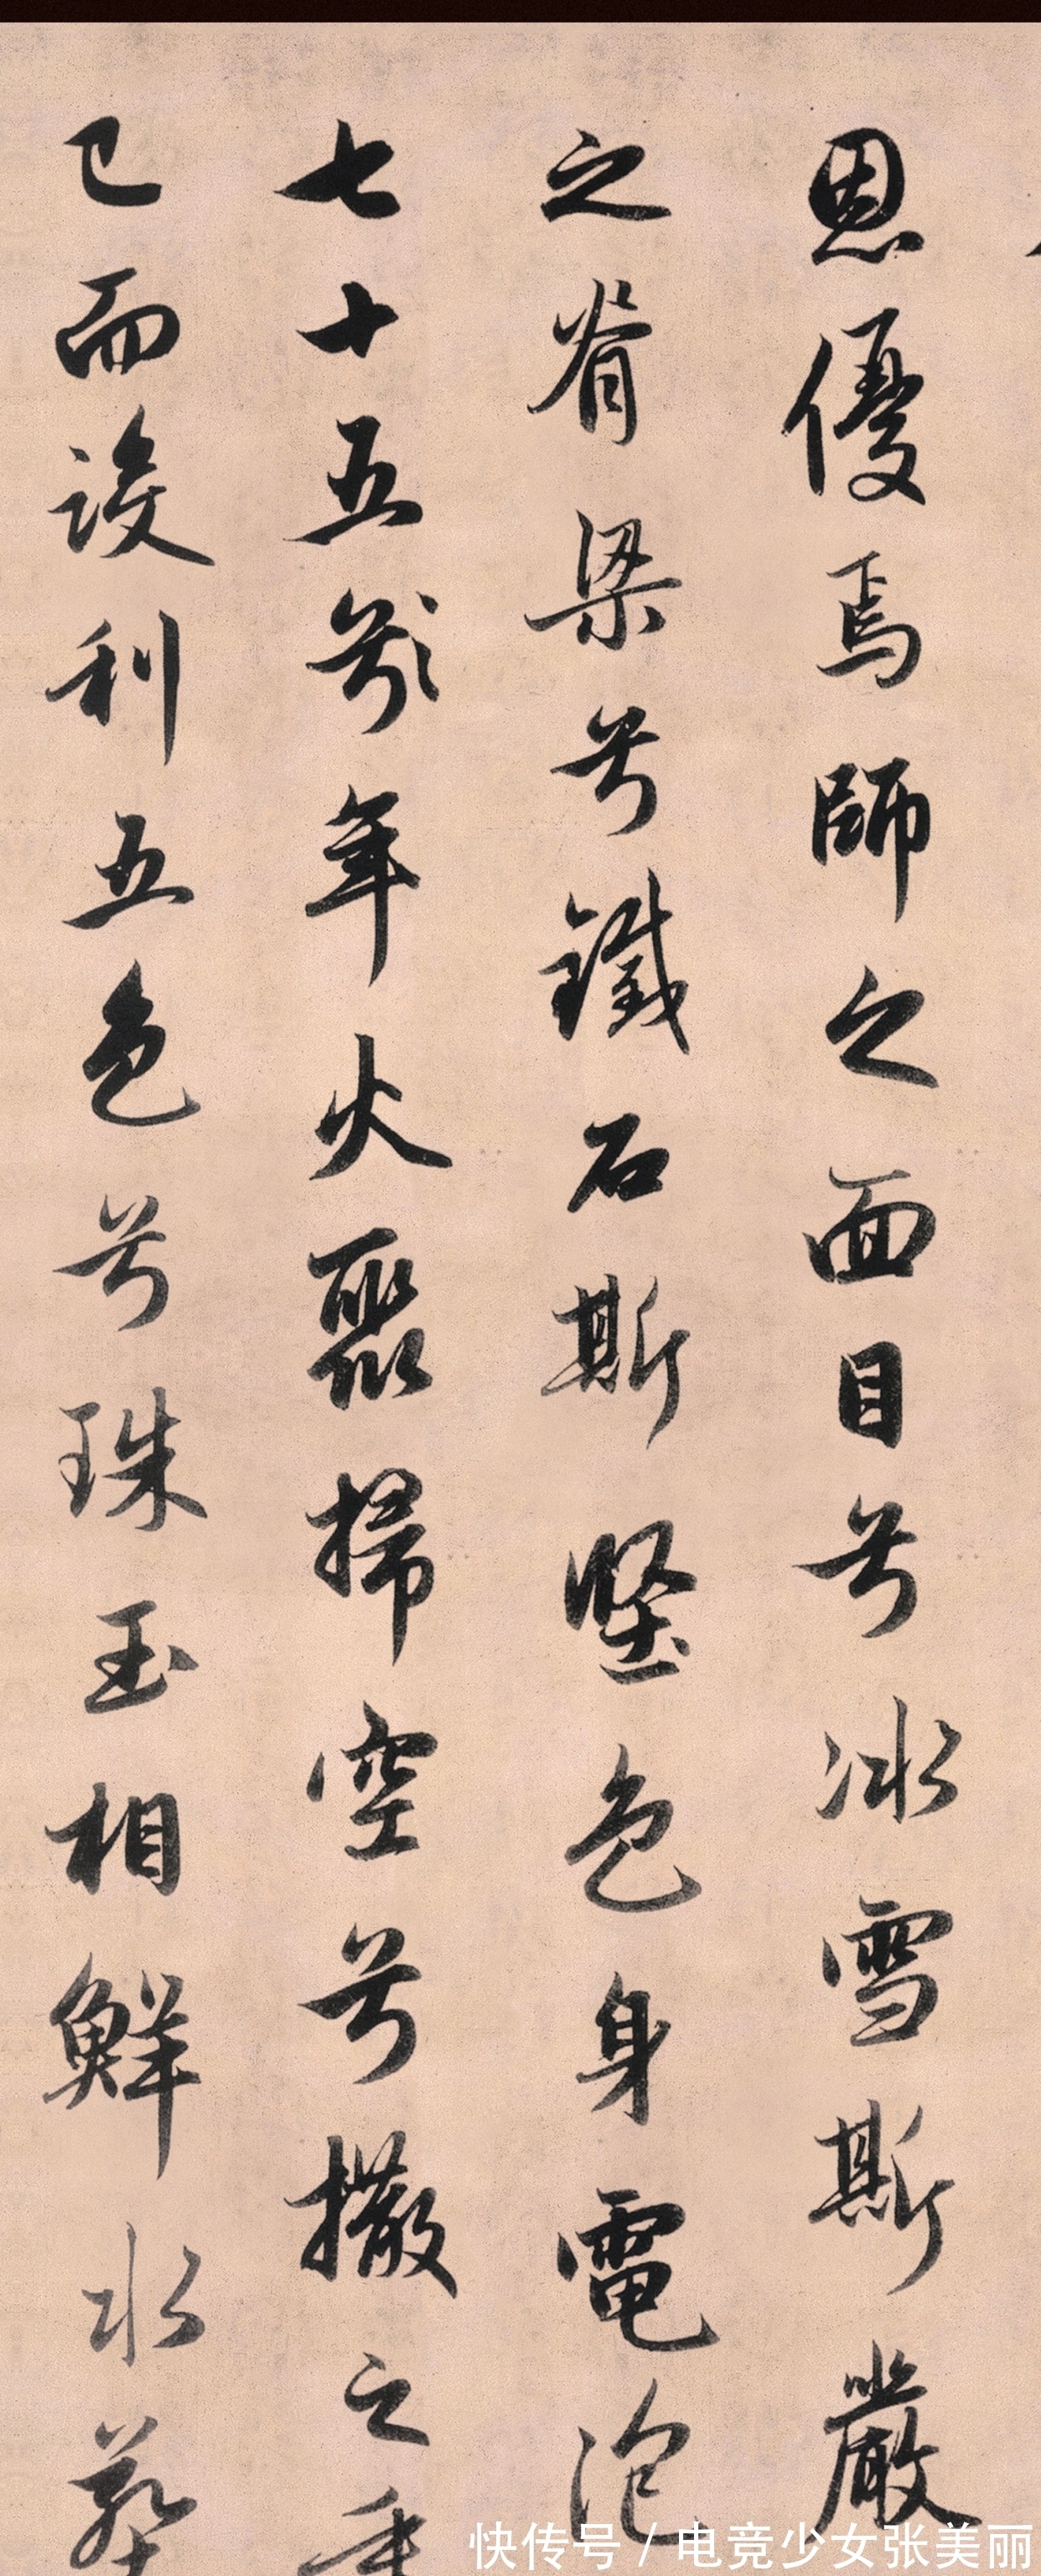 恩優焉師之面目兮冰雪斯嚴
之脊梁兮鐵石斯堅色身電泡
七十五歲年火聚掃空兮撒之手
已而設利五色兮珠玉相鮮水葬
快传号 / 电竞少女张美丽